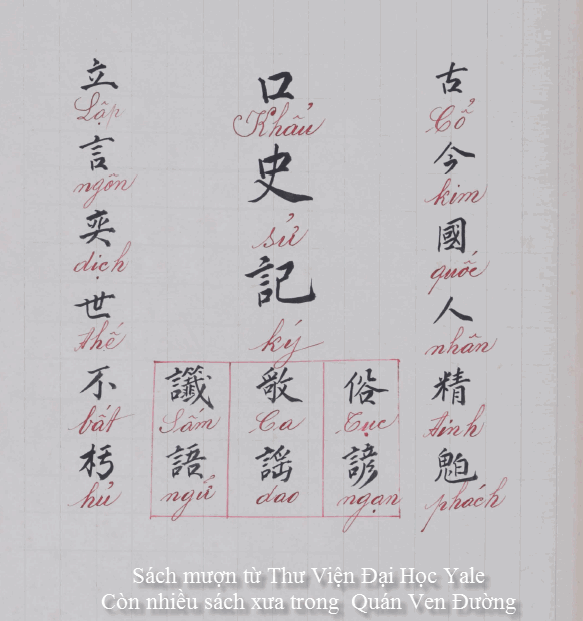 古 Cổ 今 kim 國 quốc 人 nhân 精 tinh 魄 phách
口 Khẩu 史 sử 記 ký
俗 Tục 諺 ngạn
歌 Ca 謠 dao
讖 Sấm 語 ngữ
立 Lập 言 ngôn 奕 dịch 世 thế 不 bất 朽 hủ
Sách mượn từ Thư Viện Đại Học Yale
Còn nhiều sách xưa trong Quán Ven Đường